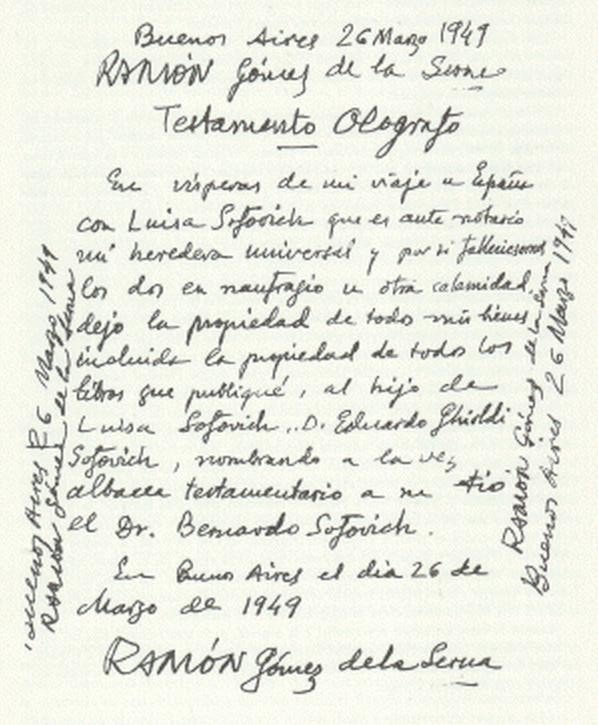 Buenos Aires 26 Marzo 1949
RAMÓN Gómez de la Serna
Testamento Olografo
En vísperas de mi viaje a España
con Luisa Sofovich que es ante notario
mi heredera universal y por si falleciesemos
los dos en naufragio u otra calamidad,
dejo la propiedad de todos mis bienes
incluida la propiedad de todos los
libros que publiqué, al hijo de
Luisa Sofovich, D. Eduardo Ghioldi
Sofovich, nombrando a la vez
albacea testamentario a su tio
el Dr. Bernardo Sofovich.
En Buenos Aires el dia 26 de
Marzo de 1949
RAMÓN Gómez de la Serna
Buenos Aires 26 Marzo 1949
RAMÓN Gómez de la Serna
RAMÓN Gómez de la Serna
Buenos Aires 26 Marzo 1949